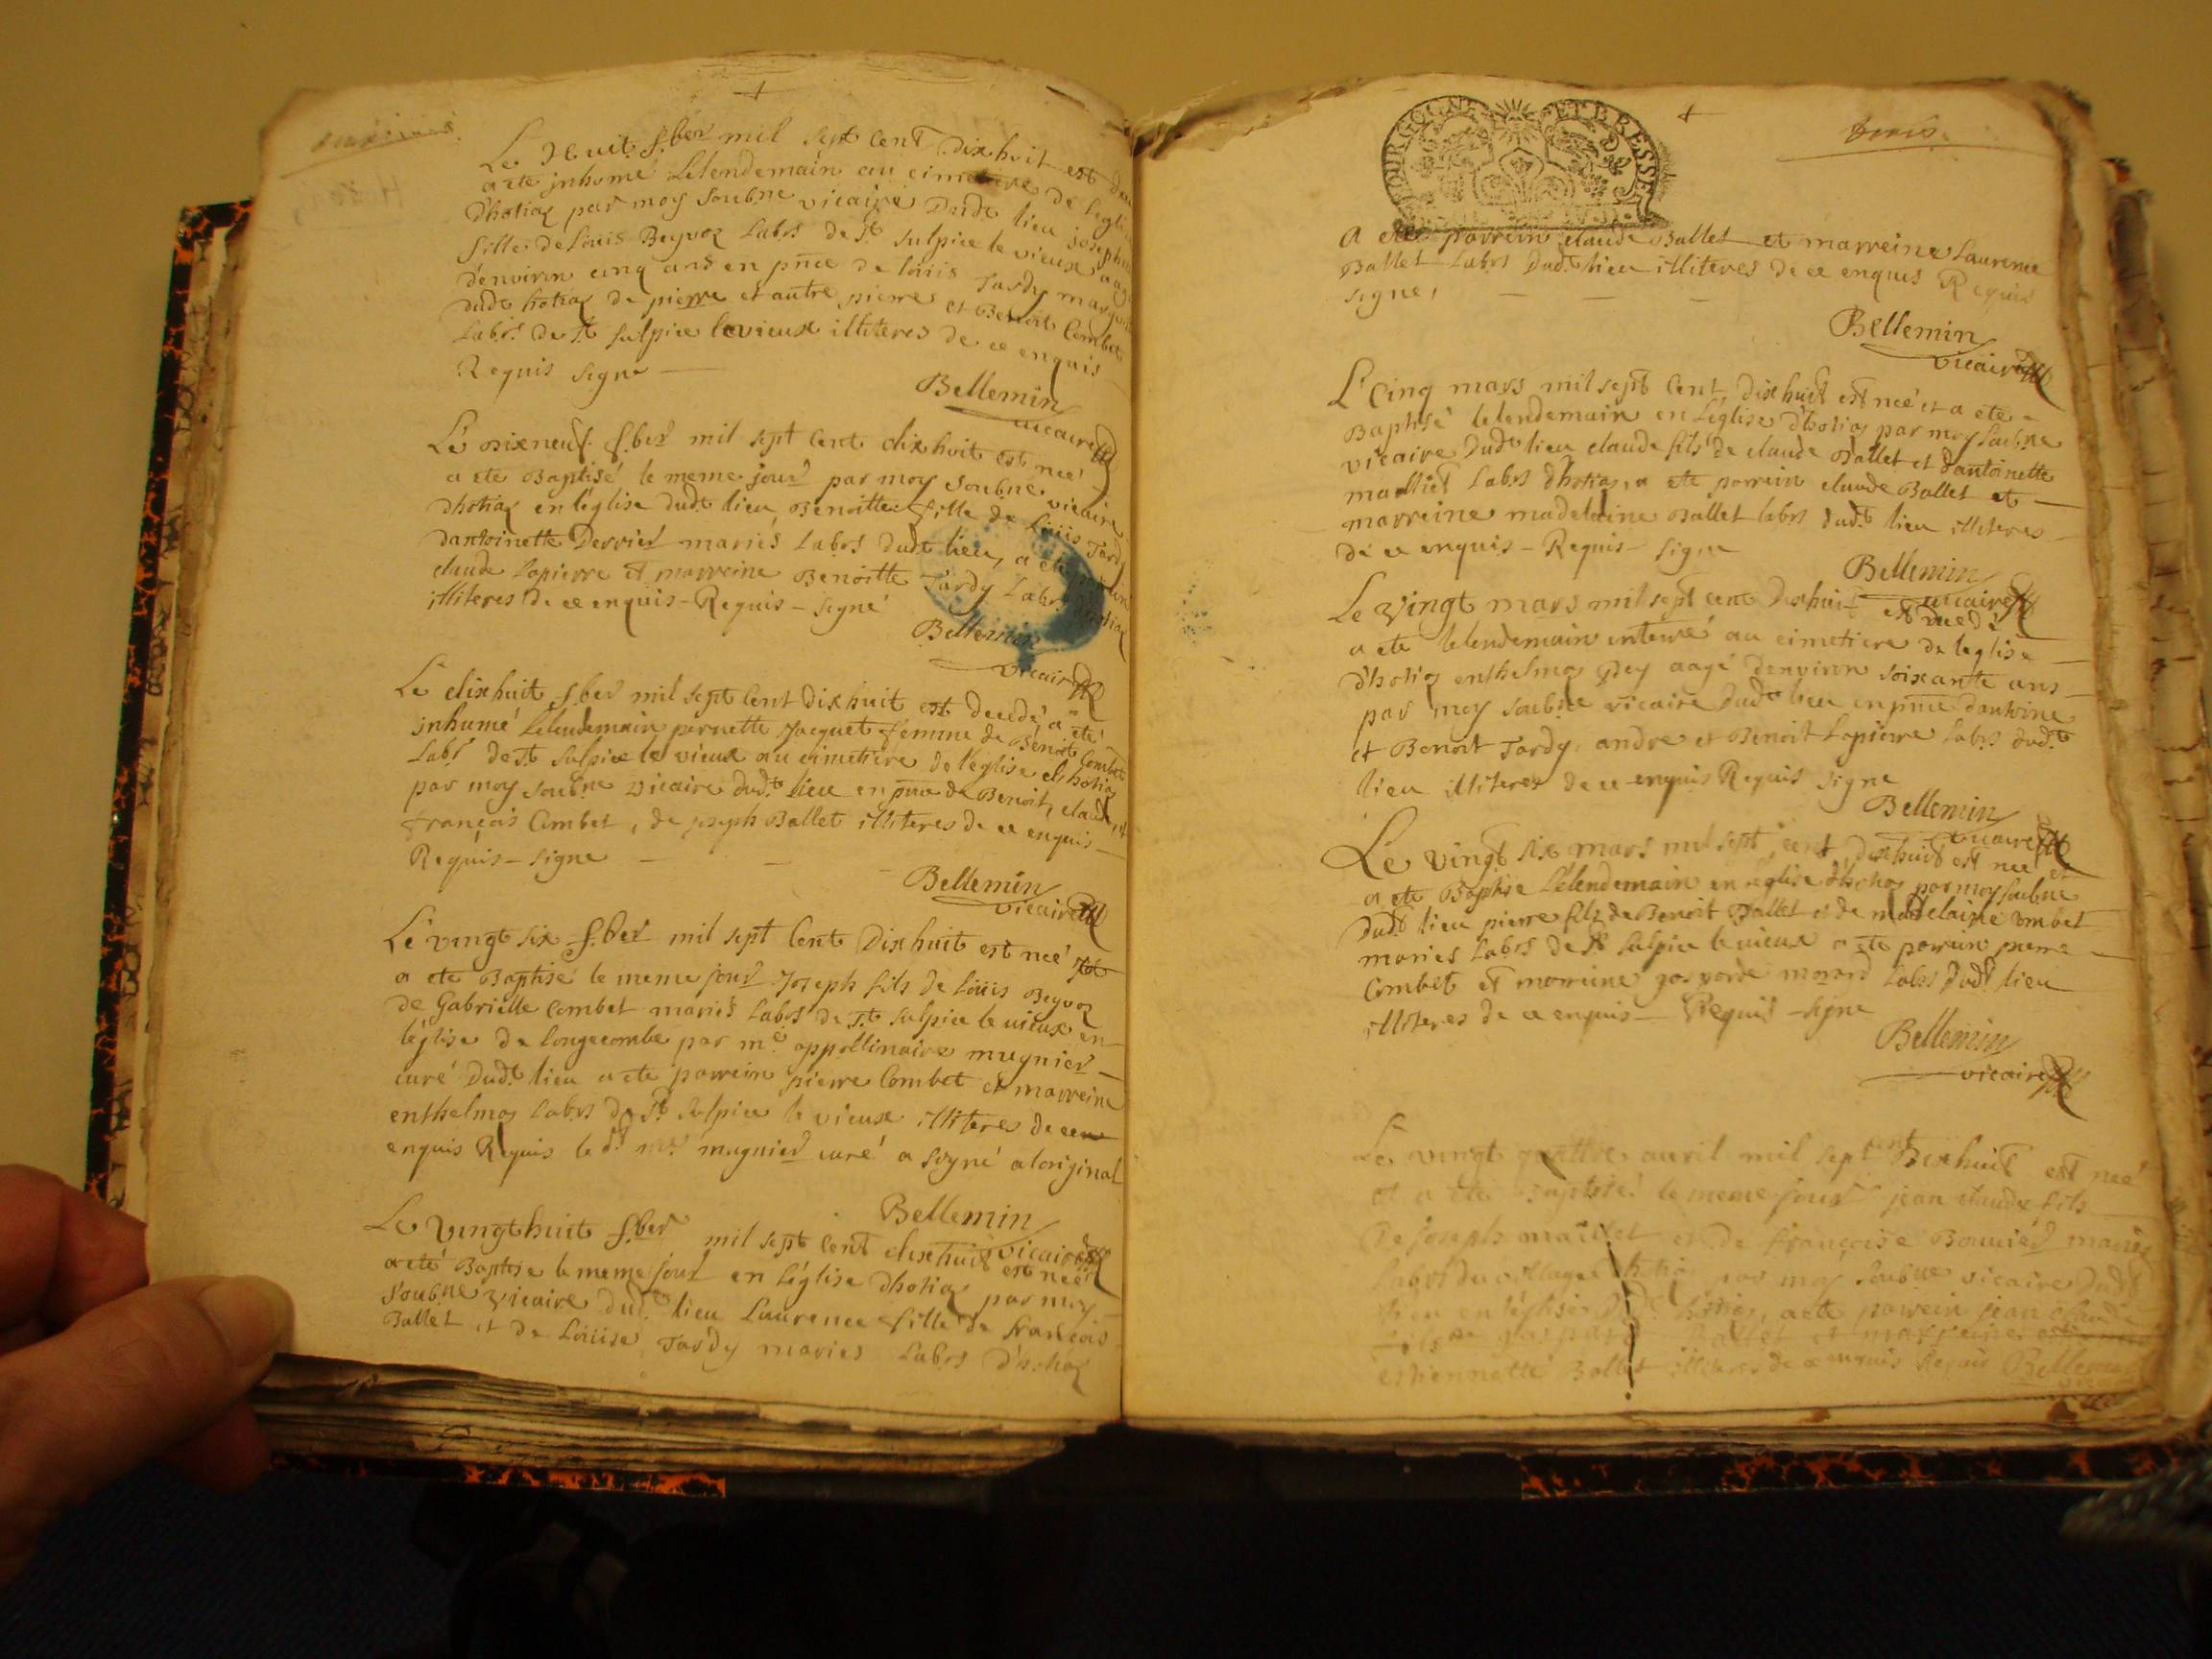 Le Huit f.ber mil sept cent dix huit est
a ete jnhumé Lelendemain au cimetiere de leglise
d'hotiaz par moy soub.ne vicaire Dud.t lieu josephte
fille de Loüis Beyvoz lab.rs de s.t sulpice le vieux
d'environ cinq ans en pñce de loüis Tardy
dud.t hotiaz de pierre et autre pierre et Benoit Combet
lab.rs de s.t sulpice levieux illiteres de ce enquis
Requis signe
Bellemin
vicaire
Le Dixneuf f.ber mil sept cent dix hoit est neé
a ete Baptisé le meme jour par moy soub.ne vicaire
dhotiaz en l'église dud.t lieu, Benoitte fille de loüis Tardy
dantoinette Derrier mariés lab.rs dud.t lieu, a ete
claude lapierre et marreine Benoitte Tardy lab.rs
illiteres de ce enquis - Requis - signé
Bellemin
vicaire
Le dixhuit f.ber mil sept cent dix huit est decedé, a eté
inhumé Lelendemain pernette Jacquet femme de Benoit Combet
lab.r de s.t sulpice le vieux au cimetiere de l'eglise dhotiaz
par moy soub.ne vicaire dud.t lieu en pñce de Benoit, claude, et
françois Combet, de joseph Ballet illiteres de ce enquis
Requis - signe
Bellemin
vicaire
Le vingt six f.ber mil sept cent dix huit est neé et
a ete Baptisé le meme jour Joseph fils de loüis Beyvoz
de Gabrielle Combet mariés lab.rs de s.t sulpice le vieux en
l'église de longecombe par m.e appollinaire mugnier
curé dud.t lieu a ete parrein pierre Combet et marreine
enthelmaz lab.rs de s.t sulpice le vieux illiteres de ce
enquis Requis le d.t m.e mugnier curé a signé a loriginal
Bellemin
vicaire
Le vingthuit f.ber mil sept cent dixhuit est neé
a eté Baptise le meme jour en l'église dhotiaz par moy
soub.ne vicaire dud.t lieu Laurence fille de françois
Ballet et de loüise Tardy maries lab.rs d'hotiaz
BOURGOGNE ET BRESSE
trois
a eté parrein claude Ballet et marreine Laurence
Ballet lab.rs dud.t lieu illiteres de ce enquis Requis
signe,
Bellemin
vicaire
Le Cinq mars mil sept cent dixhuit est neé et a ete
Baptisé lelendemain en l'église d'hotiaz par moy soub.ne
vicaire dud.t lieu claude fils de claude Ballet et dantoinette
malliet lab.rs d'hotiaz, a ete parrein claude Ballet et
marreine madelaine Ballet lab.rs dud.t lieu illiteres
de ce enquis - Requis - signe
Bellemin
vicaire
Le vingt mars mil sept cent dixhuit est decedé
a ete lelendemain enterré au cimetiere de leglise
d'hotiaz enthelmoz Dey aagé denviron soixante ans
par moy soub.ne vicaire dud.t lieu en pñce dantoine
et Benoit Tardy, andre et Benoit Lapierre lab.rs dud.t
lieu illiteres de ce enquis Requis signe
Bellemin
vicaire
Le vingt six mars mil sept cent dixhuit est neé et
a ete Baptise lelendemain en l'eglise dhotiaz par moy soub.ne
dud.t lieu pierre fils de Benoit Ballet et de madelaine Combet
maries lab.rs de s.t sulpice le vieux a ete parrein pierre
Combet et marreine gasparde morard lab.rs dud.t lieu
illiteres de ce enquis - Requis - signe
Bellemin
vicaire
Le vingt quattre avril mil sept cent Dixhuit est neé
et a ete Baptisé le meme jour jean claude fils
de joseph malliet et de françoise Bonnier mariés
lab.rs du village hotiaz par moy soub.ne vicaire dud.t
lieu en l'église d'hotiaz, a ete parrein jean claude
fils de gaspard Ballet et marreine
estiennette Ballet illiteres de ce enquis Requis Bellemin